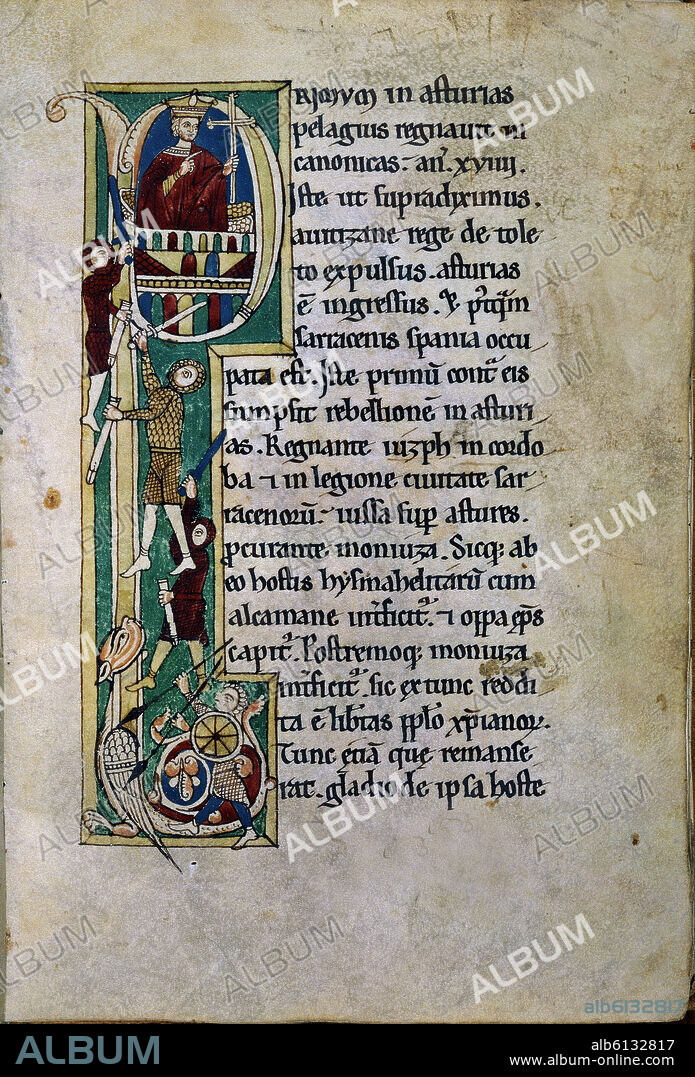 PRIMUM in asturias
pelagius regnauit in
canonicas. an̄. xviiij.
Iste ut supradiximus.
a uitizane rege de tole
to expulsus. asturias
ē ingressus. Et postq̄m
sarracenis spania occu
pata est. Iste primū cont̄ eis
sumpsit rebellionē in asturi
as. Regnante iuzph in cordo
ba et in legione ciuitate sar
racenorū iussa sup astures.
procurante moniuza. Sicq; ab
eo hostis hysmahelitarū cum
alcamane int̄ficit̄. et oppa ep̄s
capit̄. Postremoq; moniuza
int̄ficit̄. sic ex tunc reddi
ta ē libertas pplo xp̄ianor.
Tunc etiā que remanse
rat. gladio de ipsa hoste
ALBUM
alb6132817
ALBUM
alb6132817
www.album-online.com